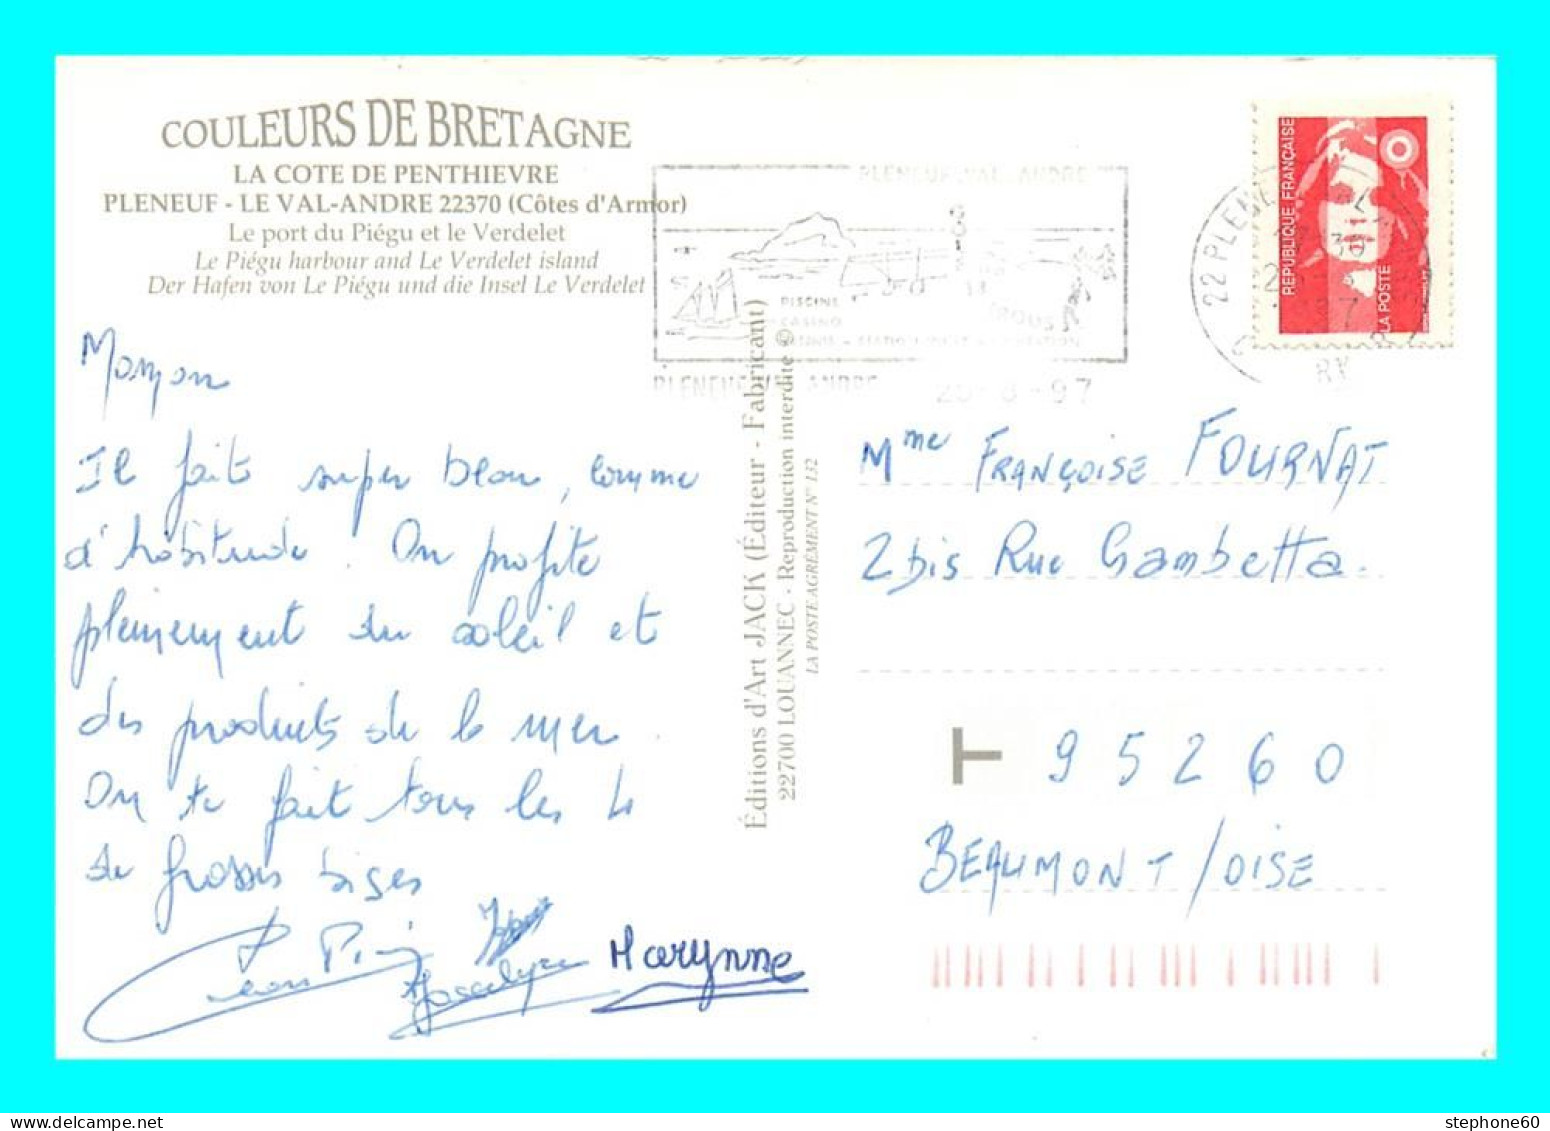 COULEURS DE BRETAGNE
LA COTE DE PENTHIEVRE
PLENEUF - LE VAL-ANDRE 22370 (Côtes d'Armor)
Le port du Piégu et le Verdelet
Le Piégu harbour and Le Verdelet island
Der Hafen von Le Piégu und die Insel Le Verdelet
Il fait super beau, comme
d'habitude. On profite
pleinement du soleil et
des produits de la mer.
On te fait tous les 4
de grosses bises
Jean Pierre
Jocelyne
Marynne
Éditions d'Art JACK (Éditeur - Fabricant)
22700 LOUANNEC - Reproduction interdite ©
LA POSTE AGRÉMENT N° 132
PLENEUF VAL ANDRE
PISCINE
CASINO
PLENEUF VAL ANDRE
22 PLENEUF
REPUBLIQUE FRANÇAISE
LA POSTE
Mme FRANÇOISE FOURNAT
2bis Rue Gambetta.
T 95260
BEAUMONT/OISE
stephone60